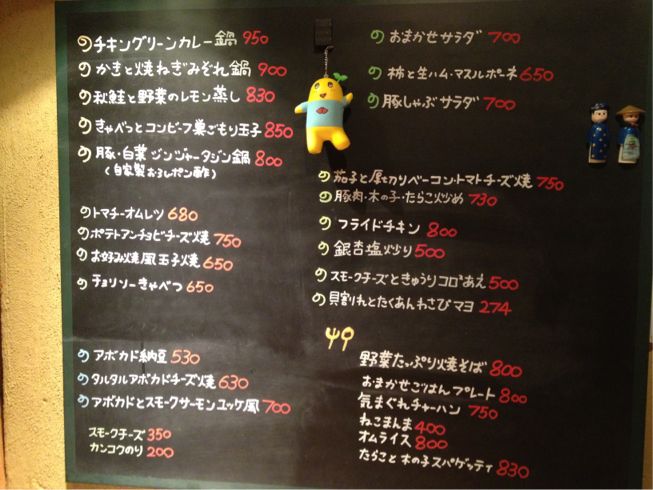 チキングリーンカレー鍋 950
かきと焼ねぎみぞれ鍋 900
秋鮭と野菜のレモン蒸し 830
きゃべっとコンビーフ巣ごもり玉子 850
豚・白菜 ジンジャータジン鍋 800
(自家製おろしポン酢)
トマチーオムレツ 680
ポテトアンチョビチーズ焼 750
お好み焼風玉子焼 650
チョリソーきゃべつ 650
アボカド納豆 530
タルタルアボカドチーズ焼 630
アボカドとスモークサーモンユッケ風 700
スモークチーズ 350
カンコクのり 200
おまかせサラダ 700
柿と生ハム・マスルポーネ 650
豚しゃぶサラダ 700
茄子と厚切りベーコン・トマトチーズ焼 750
豚肉・木の子・たらこ炒め 730
フライドチキン 800
銀杏塩炒り 500
スモークチーズときゅうりコロコロあえ 500
貝割れとたくあんわさびマヨ 274
野菜たっぷり焼そば 800
おまかせごはんプレート 800
気まぐれチャーハン 750
ねこまんま 400
オムライス 800
たらこと木の子スパゲッティ 830